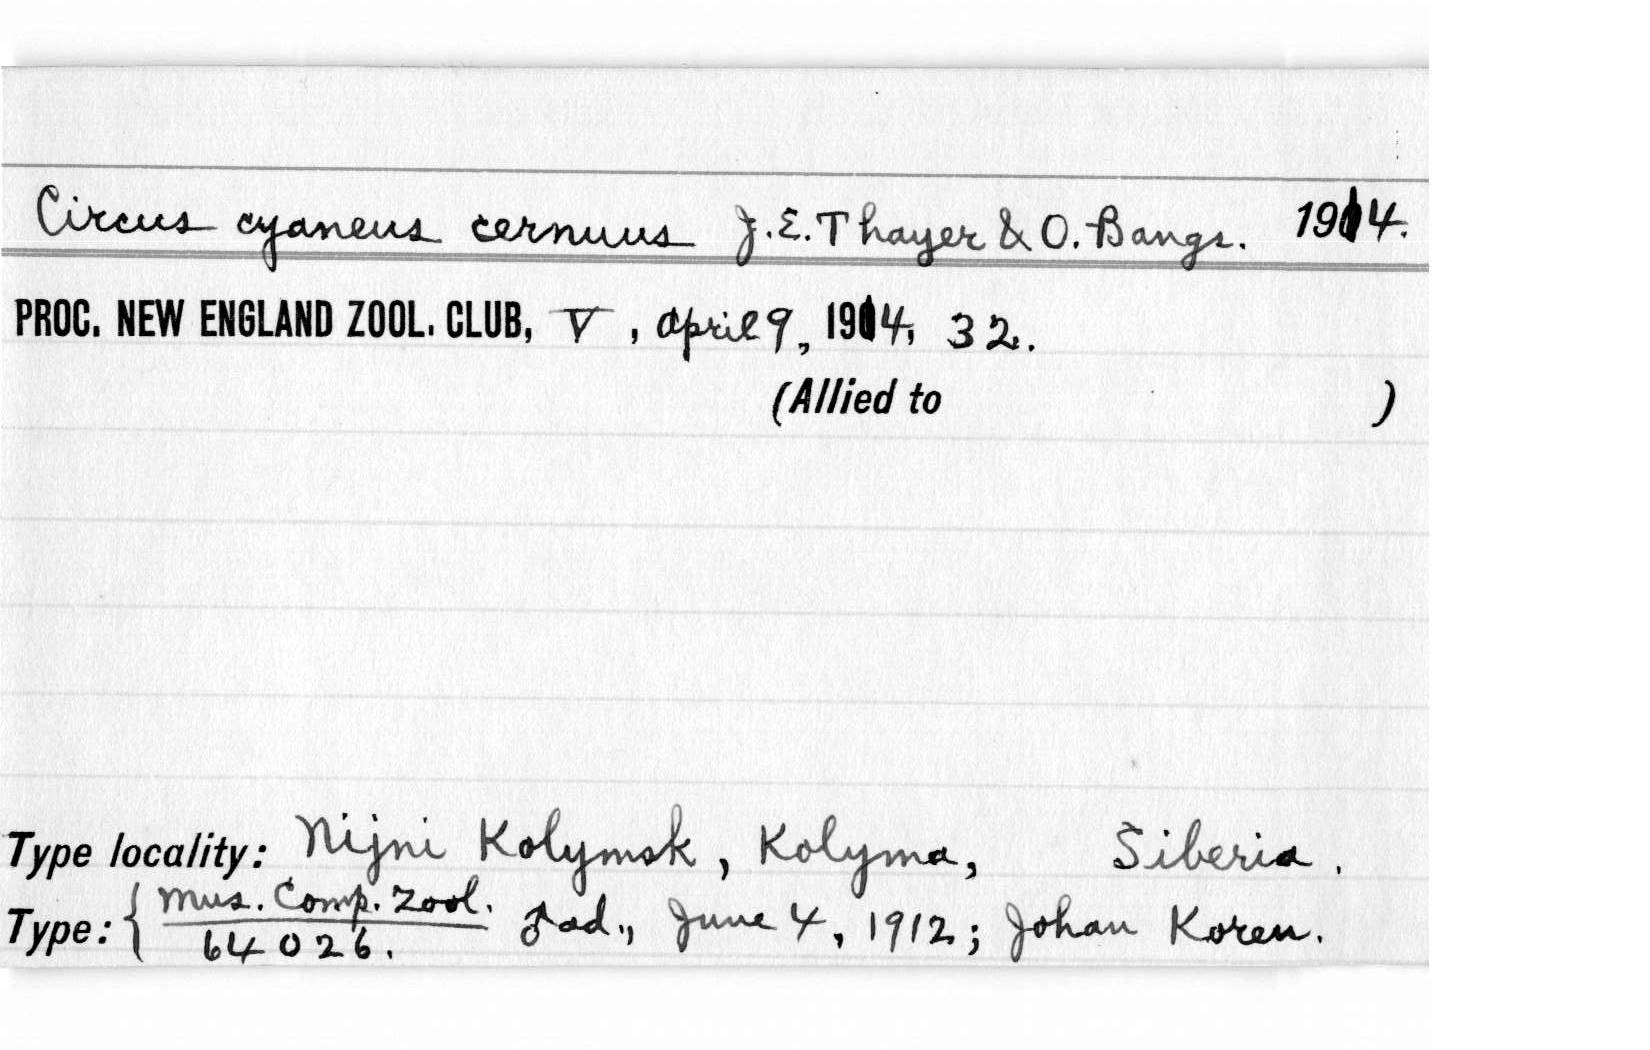 Circus cyaneus cernuus J.E.Thayer & O.Bangs. 1914.
PROC. NEW ENGLAND ZOOL. CLUB, V, April 9, 1914, 32.
(Allied to )
Type locality: Nijni Kolymsk, Kolyma, Siberia.
Type: { Mus. Comp. Zool.
64026. ♂ad., June 4, 1912; Johan Koren.